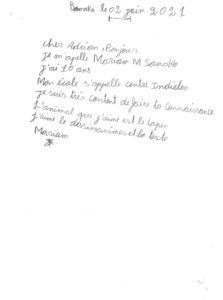 Bamako le 02 juin 2021
cher Adrian, Bonjour
je m'apelle Mariam M Sanoko
j'ai 10 ans
Mon école s'appelle centre
je suis très content de faire ta connaissance
L'animal que j'aime est le lapin
j'aime le et la
Mariam